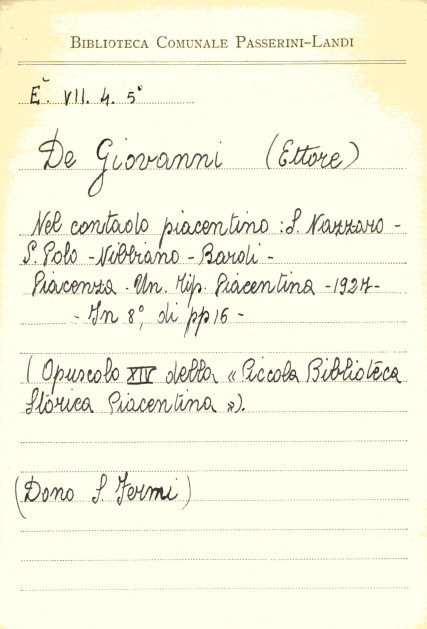 BIBLIOTECA COMUNALE PASSERINI-LANDI
Ē. VII. 4. 5°
De Giovanni (Ettore)
Nel contado piacentino : S. Nazzaro -
S. Polo - Nibbiano - Bardi -
Piacenza - Un. Tip. Piacentina - 1927 -
- In 8°, di pp 16 -
( Opuscolo XIV della « Piccola Biblioteca
Storica Piacentina »).
(Dono S. Fermi)